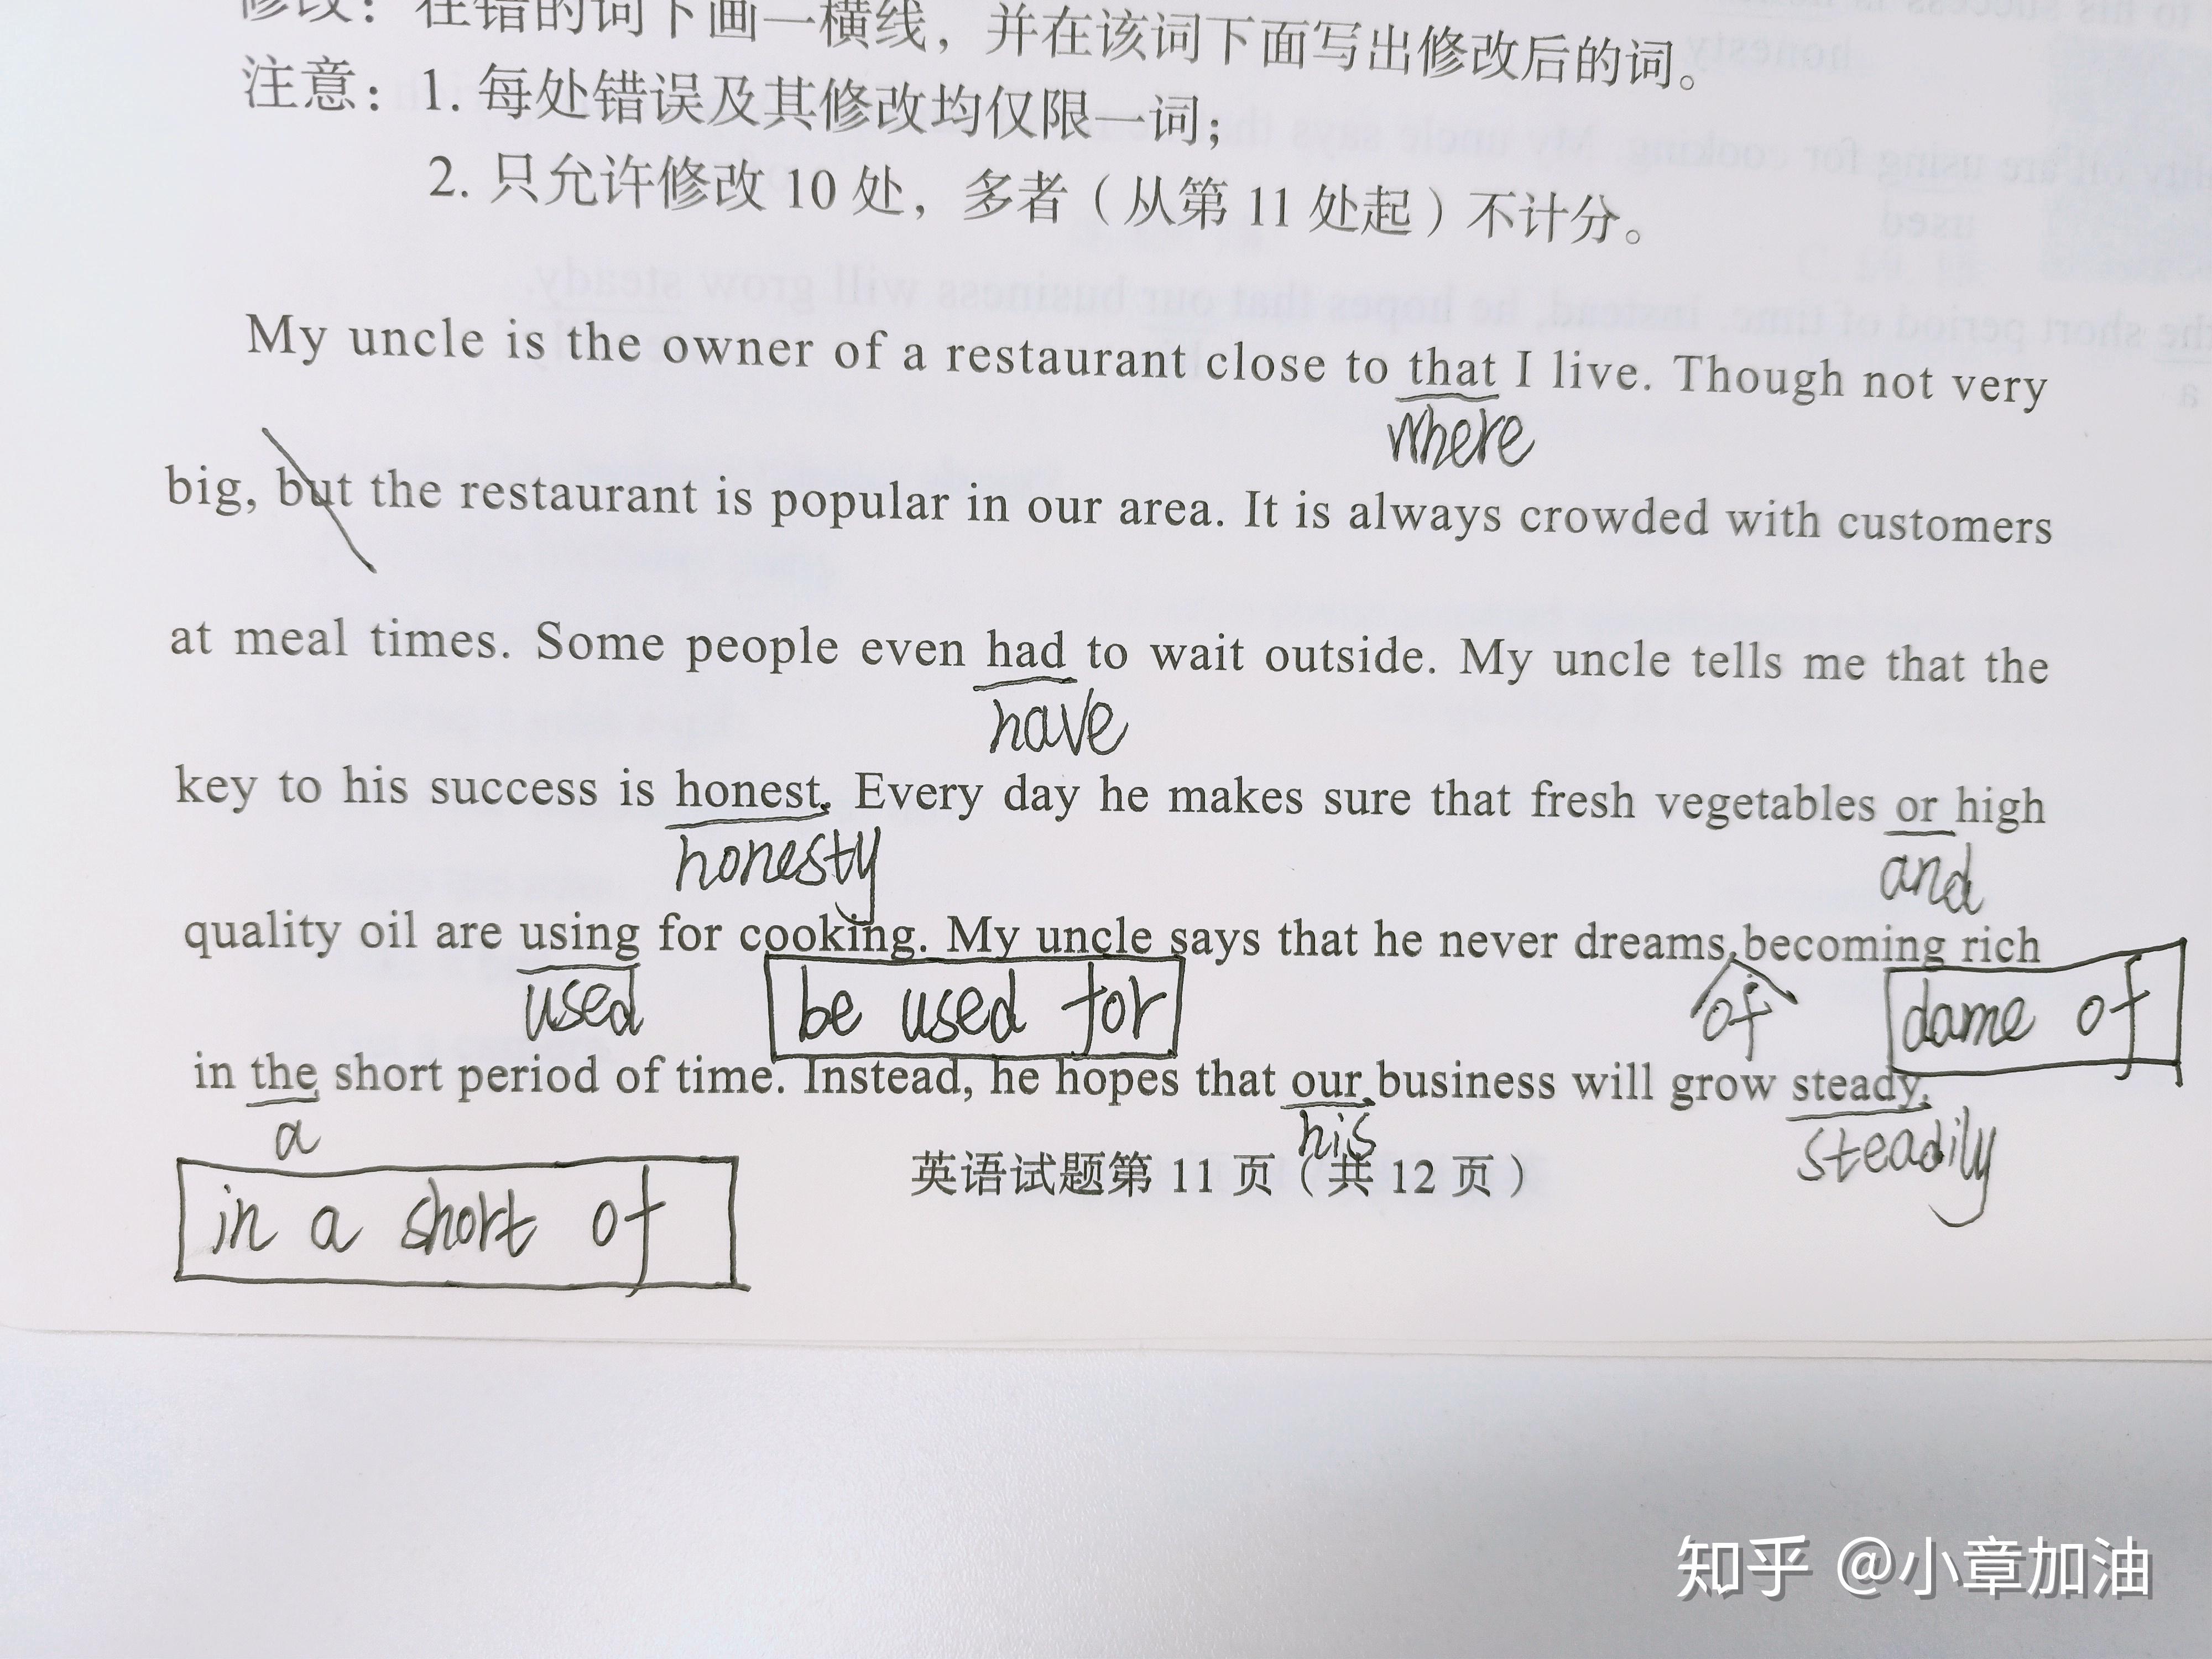 修改：在错的词下画一横线，并在该词下面写出修改后的词。
注意：1. 每处错误及其修改均仅限一词；
2. 只允许修改 10 处，多者（从第 11 处起）不计分。
My uncle is the owner of a restaurant close to that I live. Though not very
where
big, but the restaurant is popular in our area. It is always crowded with customers
at meal times. Some people even had to wait outside. My uncle tells me that the
have
key to his success is honest. Every day he makes sure that fresh vegetables or high
honesty and
quality oil are using for cooking. My uncle says that he never dreams becoming rich
used be used for of dame of
in the short period of time. Instead, he hopes that our business will grow steady.
a his steadily
英语试题第 11 页（共 12 页）
in a short of
知乎 @小章加油